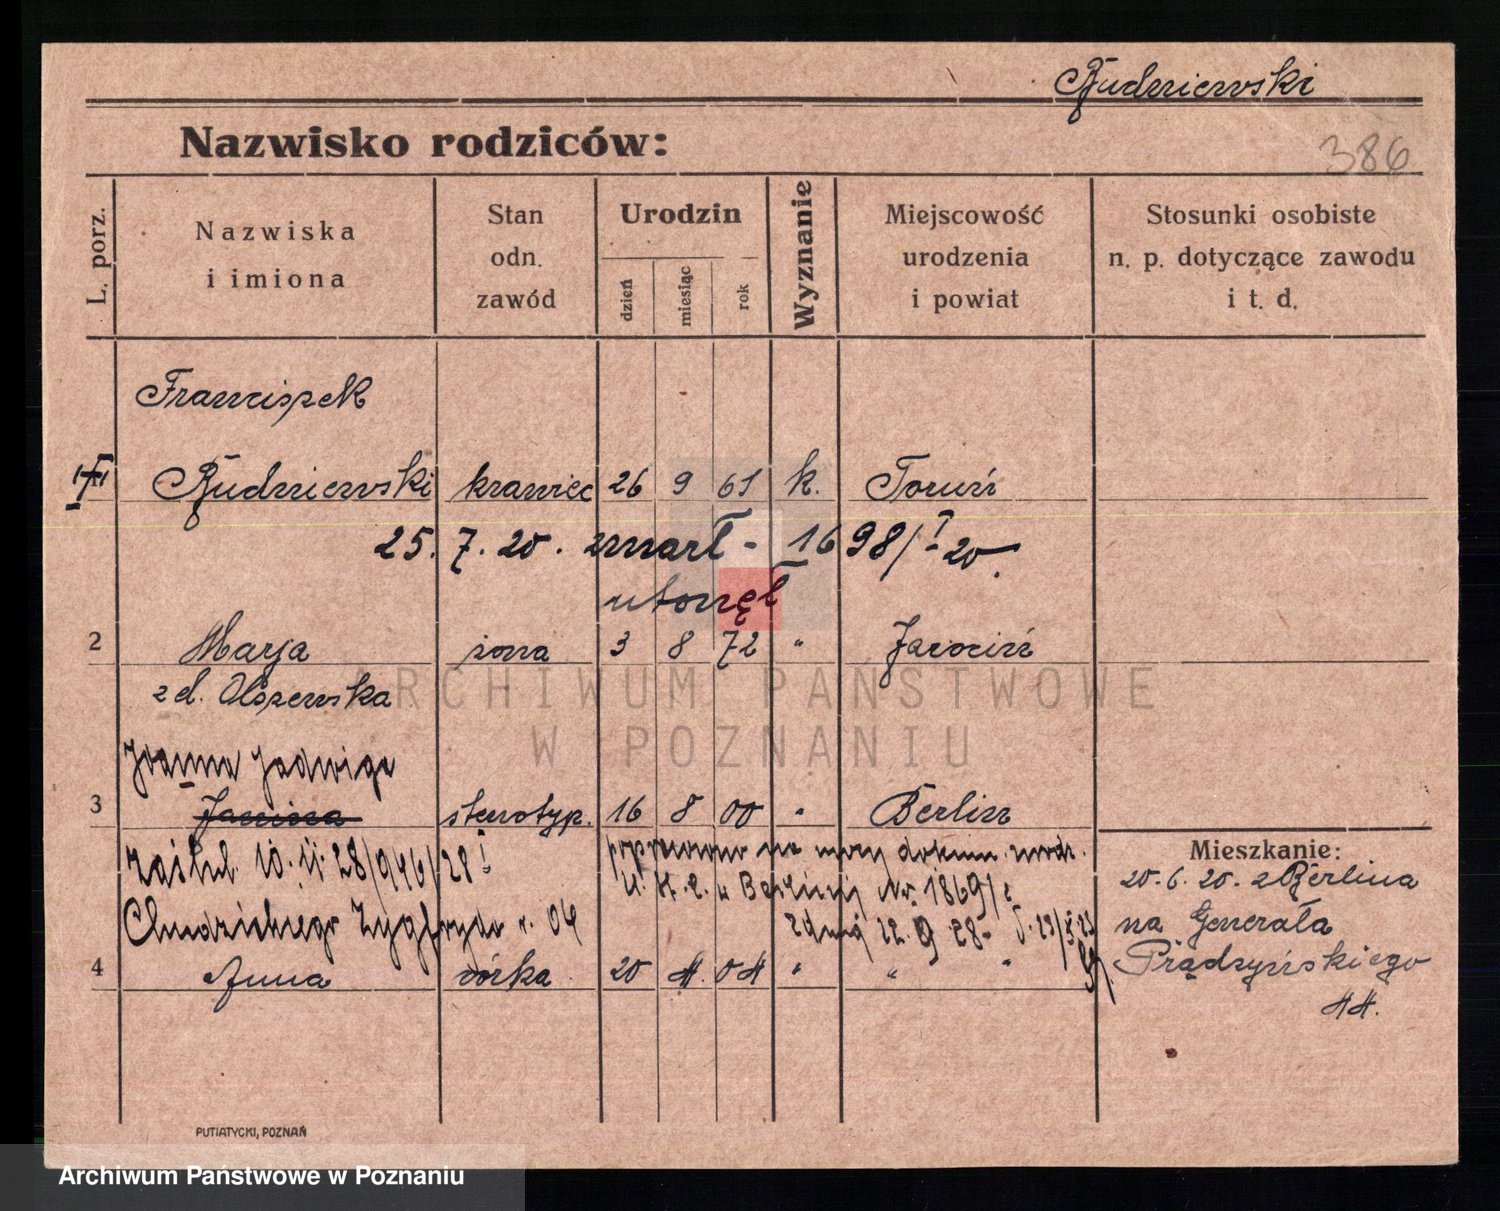 Rudniewski
Nazwisko rodziców:
386
L. porz.
Nazwiska
i imiona
Stan
odn.
zawód
Urodzin
dzień
miesiąc
rok
Wyznanie
Miejscowość
urodzenia
i powiat
Stosunki osobiste
n. p. dotyczące zawodu
i t. d.
Franciszek
Rudniewski krawiec 26 9 61 k. Toruń
25. 7. 20. zmarł - 1698/I-20.
utonął
2 Marja żona 3 8 72 " Jarocin
zd. Olszewska
ARCHIWUM PAŃSTWOWE
W POZNANIU
Joanna Jadwiga
3 Janina stenotyp. 16 8 00 " Berlin
zaślub. 10. 11. 28/946/28 I
poprawiono na mocy dokum. urodz.
U. St. C. w Berlinie Nr. 1869/
Chudzickiego Zygfryda r. 04
22. 9 28
4 Anna córka 20 4. 04 " " "
Mieszkanie:
20. 6. 20. z Berlina
na Generała
Prądzyńskiego
44.
PUTIATYCKI, POZNAŃ
Archiwum Państwowe w Poznaniu